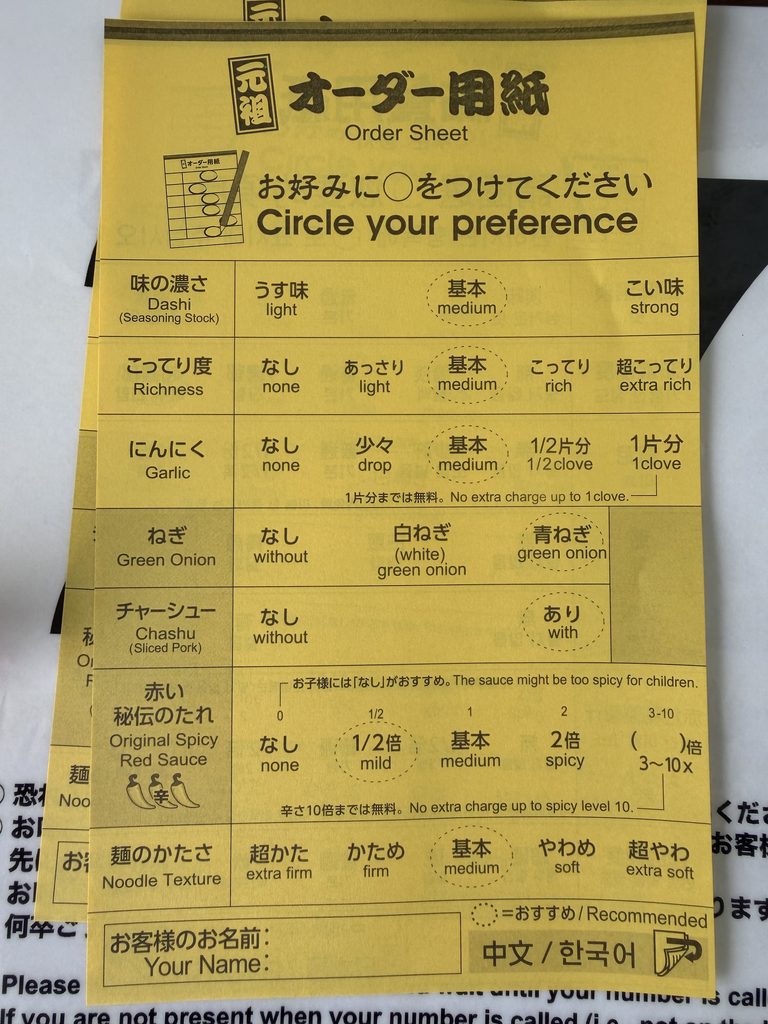 元祖 オーダー用紙
Order Sheet
お好みに○をつけてください
Circle your preference
味の濃さ うす味 基本 こい味
Dashi light medium strong
(Seasoning Stock)
こってり度 なし あっさり 基本 こってり 超こってり
Richness none light medium rich extra rich
にんにく なし 少々 基本 1/2片分 1片分
Garlic none drop medium 1/2clove 1clove
1片分までは無料。No extra charge up to 1clove.
ねぎ なし 白ねぎ 青ねぎ
Green Onion without (white) green onion
green onion
チャーシュー なし あり
Chashu without with
(Sliced Pork)
お子様には「なし」がおすすめ。The sauce might be too spicy for children.
赤い
秘伝のたれ 0 1/2 1 2 3-10
Original Spicy なし 1/2倍 基本 2倍 ( )倍
Red Sauce none mild medium spicy 3~10x
辛
辛さ10倍までは無料。No extra charge up to spicy level 10.
麺のかたさ 超かた かため 基本 やわめ 超やわ
Noodle Texture extra firm firm medium soft extra soft
=おすすめ/Recommended
お客様のお名前:
Your Name:
中文 / 한국어
Please
wait until your number is call
If you are not present when your number is called (i.e., not